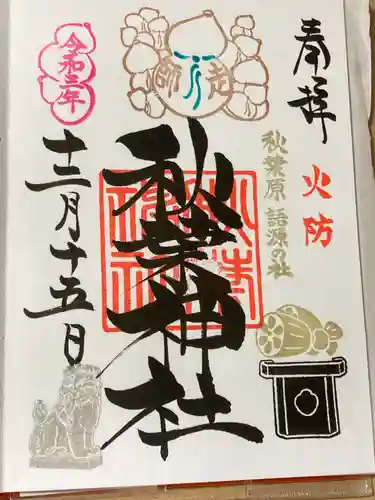 奉拝
火防
秋葉原 語源の社
秋葉神社
令和三年
十二月十五日